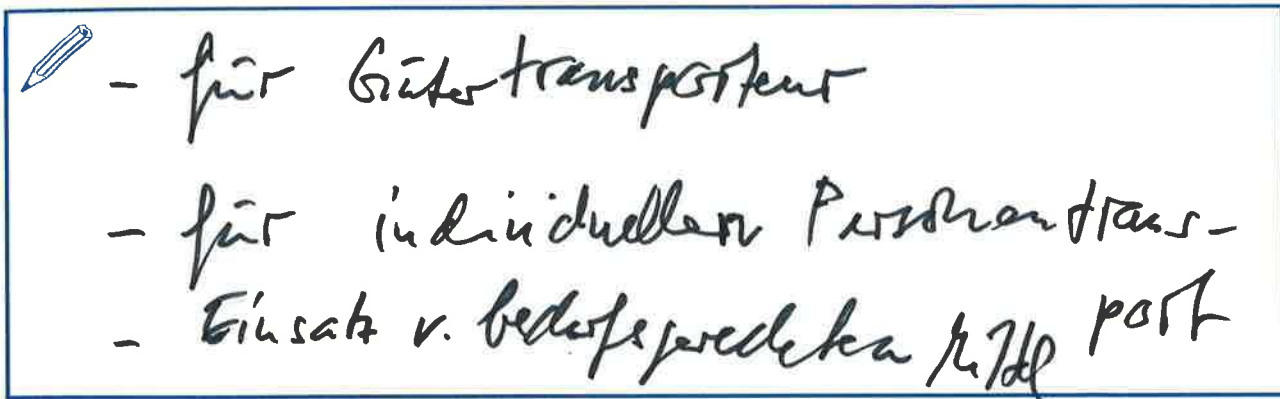 - für Gütertransporteur
- für individuellen Personentrans-
port
- Einsatz v. bedarfsgerechten